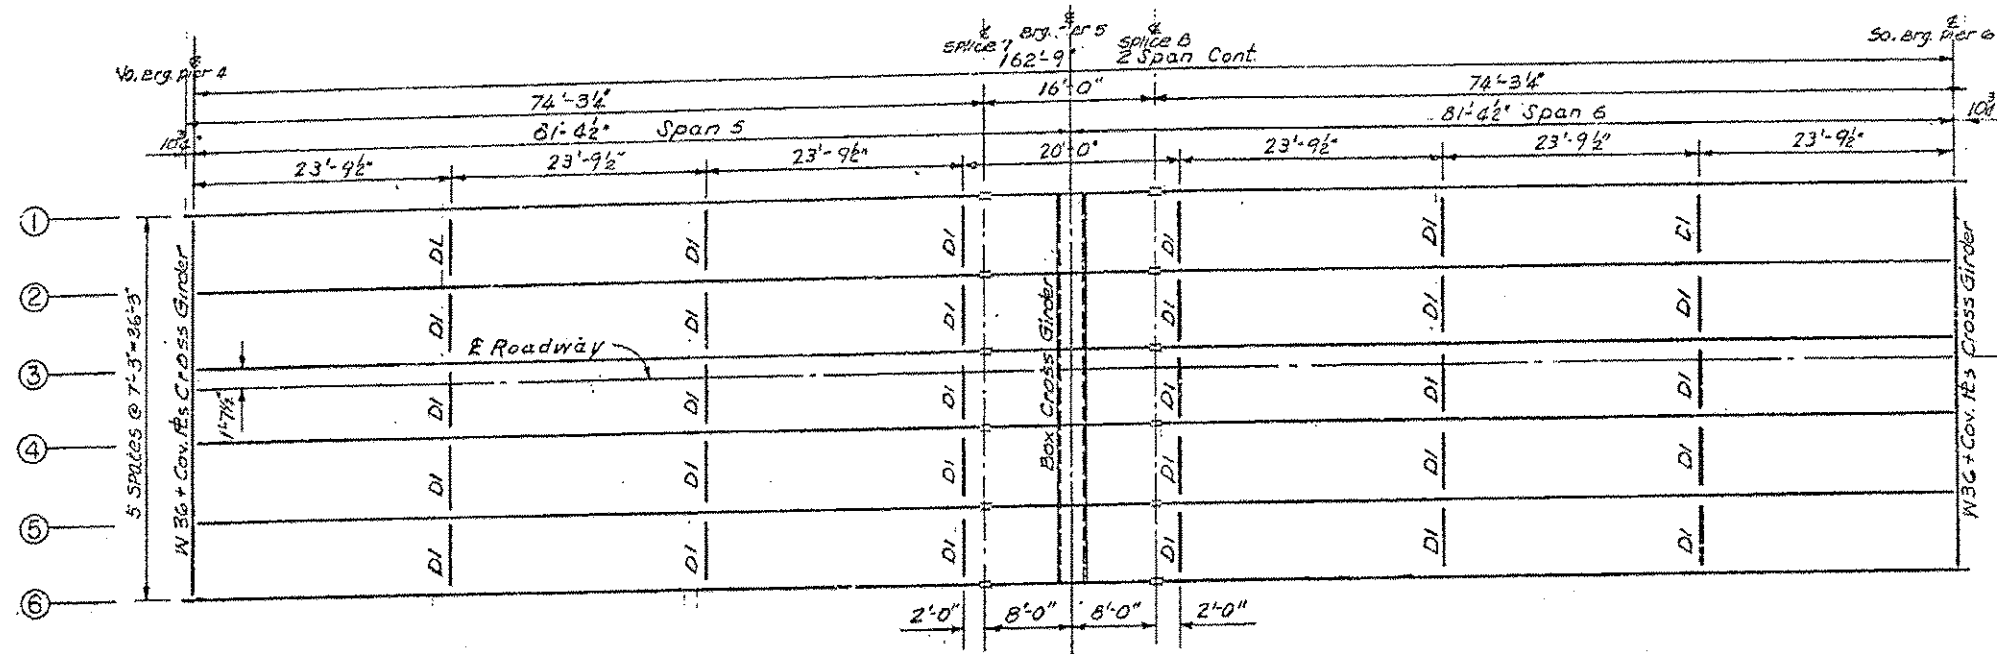 ℄ Splice 7
℄ Brg. Pier 5
℄ Splice 8
℄ So. Brg. Pier 6
162'-9"
2 Span Cont.
℄ No. Brg. Pier 4
74'-3¼"
16'-0"
74'-3¼"
10¾"
81'-4½" Span 5
81'-4½" Span 6
10¾"
23'-9½"
23'-9½"
23'-9½"
20'-0"
23'-9½"
23'-9½"
23'-9½"
1
2
3
4
5
6
5 Spaces @ 7'-3"=36'-3"
W 36 + Cov. ℔s Cross Girder
1'-7½"
℄ Roadway
Box Cross Girder
W36 + Cov. ℔s Cross Girder
D1 D1 D1 D1 D1 D1
D1 D1 D1 D1 D1 D1
D1 D1 D1 D1 D1 D1
D1 D1 D1 D1 D1 D1
D1 D1 D1 D1 D1 D1
2'-0"
8'-0"
8'-0"
2'-0"